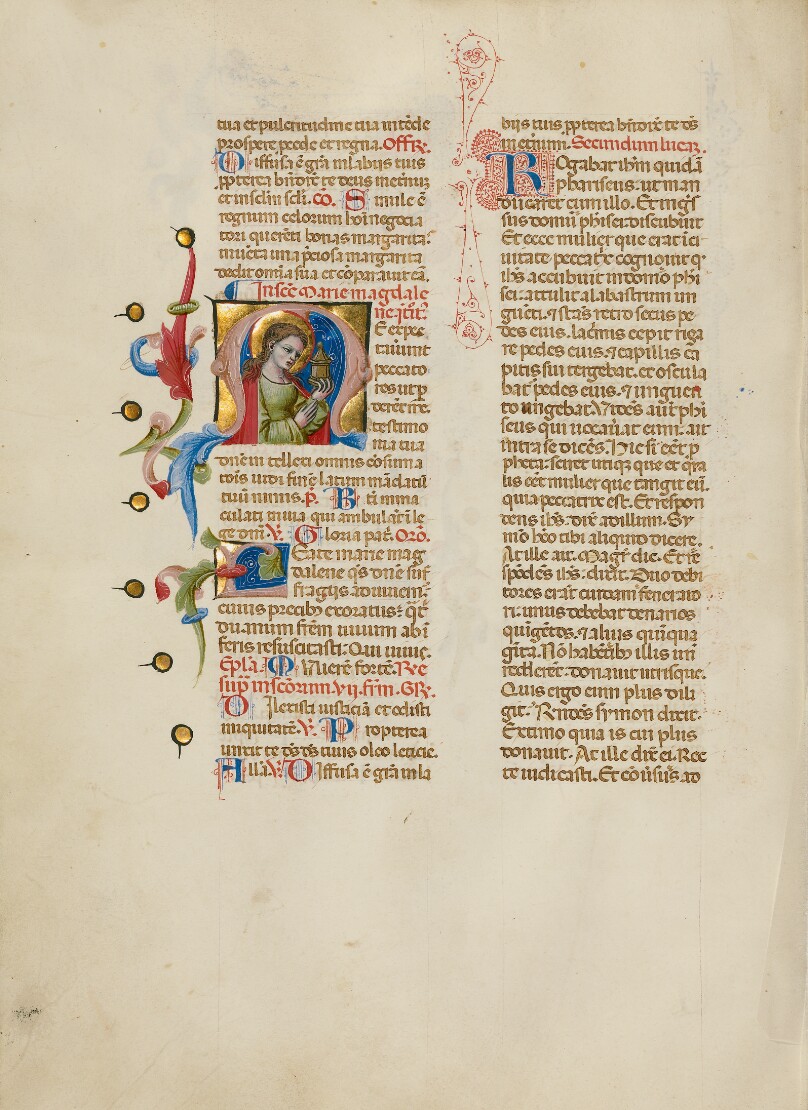 tua et pulcritudine tua intēde
prospere p̱cede et regna. Offīr.
Diffusa ē grā in labiis tuis
p̱pterea bn̄dixit te deus in etnuʒ
et in sclm scli. cō. Simile ē
regnum celorum hoī negocia
tori querēti bonas margarita.
inuēta una p̄ciosa margarita
dedit omīa sua et cōparauit eā.
In scē Marie magdale
ne. ītit.
Me expec
tauunt
peccato
res ut p
derēt me.
testimo
nia tua
dnē in tellexi omnis cōsuma
tōis uidi finē latum mādatū
tuū nimis. p̄. Bti imma
culati in uia qui ambulāt ī le
ge dnī. V̄. Gloria pat̄. Oro.
Beate marie mag
dalene q̄s dnē suf
fragiis adiuuem̄.
cuius precibꝰ exoratus: q̄t
duanum frēm uiuum ab ī
feris resuscitasti: Qui uiuis.
Epla. Mulierē fortē. Re
sup in scōrum. vii. frm. GR̄.
Dilexisti iustaciā et odisti
iniquitatē. V̄. Propterea
unxit te ds̄ ds̄ tuus oleo leticie.
Alla. V̄. Diffusa ē grā in la
biis tuis p̱pterea bn̄dixit te ds̄
in etnum. Secundum lucā.
Rogabat ihm̄ quidā
phariseus. ut man
ducaret cum illo. Et īgrēs
sus domū phisei. discubuit
Et ecce mulier que erat ī ci
uitate peccatrix cognouit qꝰ
ihs̄ accubuit in domo phi
sei. attulit alabastrum un
guēti. ⁊ stās retro secus pe
des eius. lac̄mis cepit riga
re pedes eius. ⁊ capillis ca
pitis sui tergebat. et oscula
bat̄ pedes eius. ⁊ unguen
to ungebat. Vidēs aut̄ phi
seus qui uocauāt eum. ait
intra se dicēs. Hic si eēt p̱
pheta. sciret utiqʒ que et q̄ra
lis eēt mulier que tangit eū.
quia peccatrix est. Et respon
dens ihs̄. dix̄ ad illum. Sy
mō hēo tibi aliquid dicere.
At ille ait. Magr̄ dic. Et rē
spōdēs ihs̄. dixit. Duo debi
tores erāt cuidam feneratō
ri. unus debebat denarios
quīgētos. ⁊ alius quīqua
gīta. Nō habētibꝰ illis un̄
redderēt. donauit utrisque.
Quis ergo eum plus dili
git. Rn̄dēs symon dixit.
Estimo quia is cui plus
donauit. At ille dix̄ ei. Rec
te iudicasti. Et cōuīsus ad